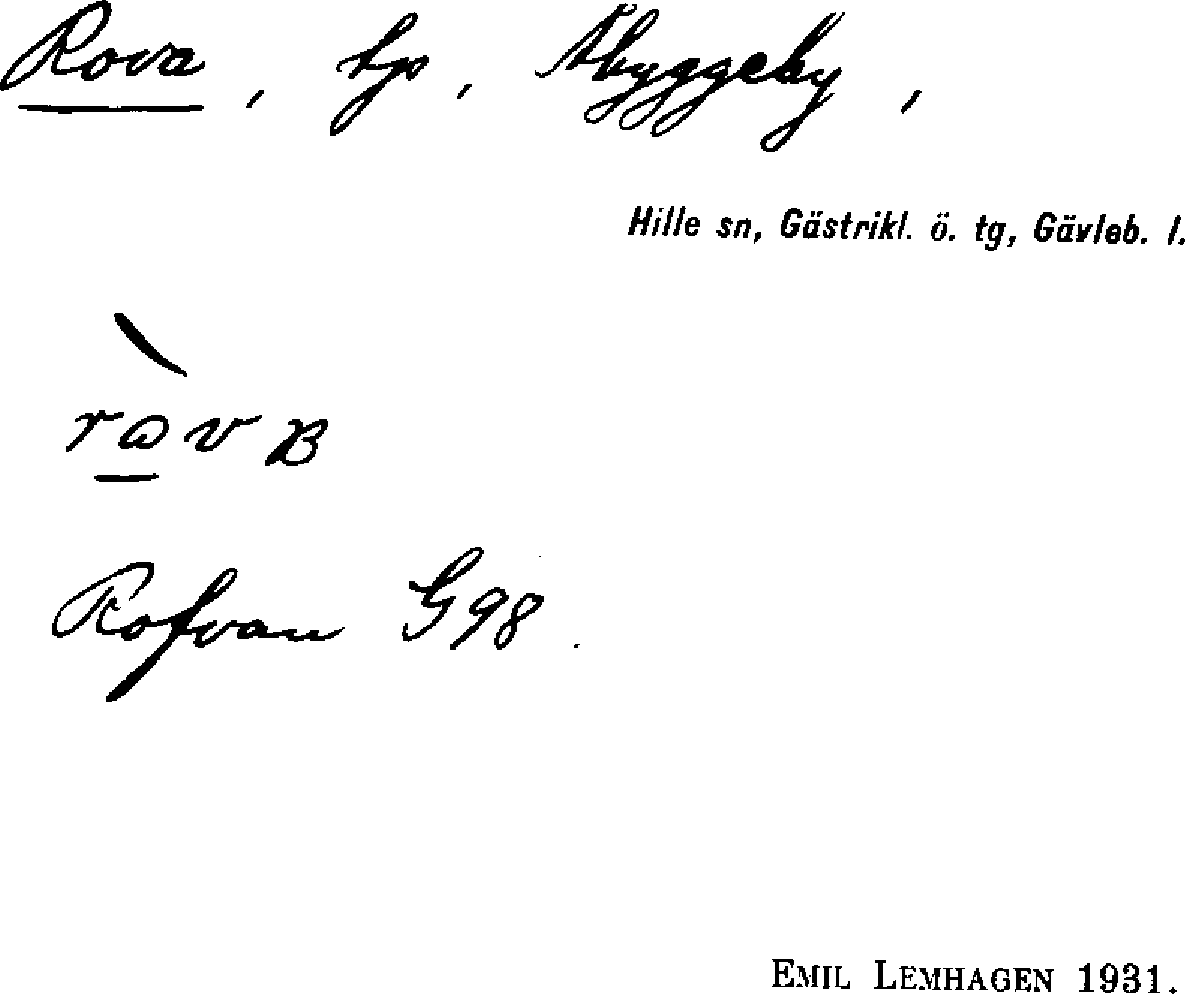 Rova, lp, Åbyggeby,
Hille sn, Gästrikl. ö. tg, Gävleb. l.
Rofvan G98.
EMIL LEMHAGEN 1931.